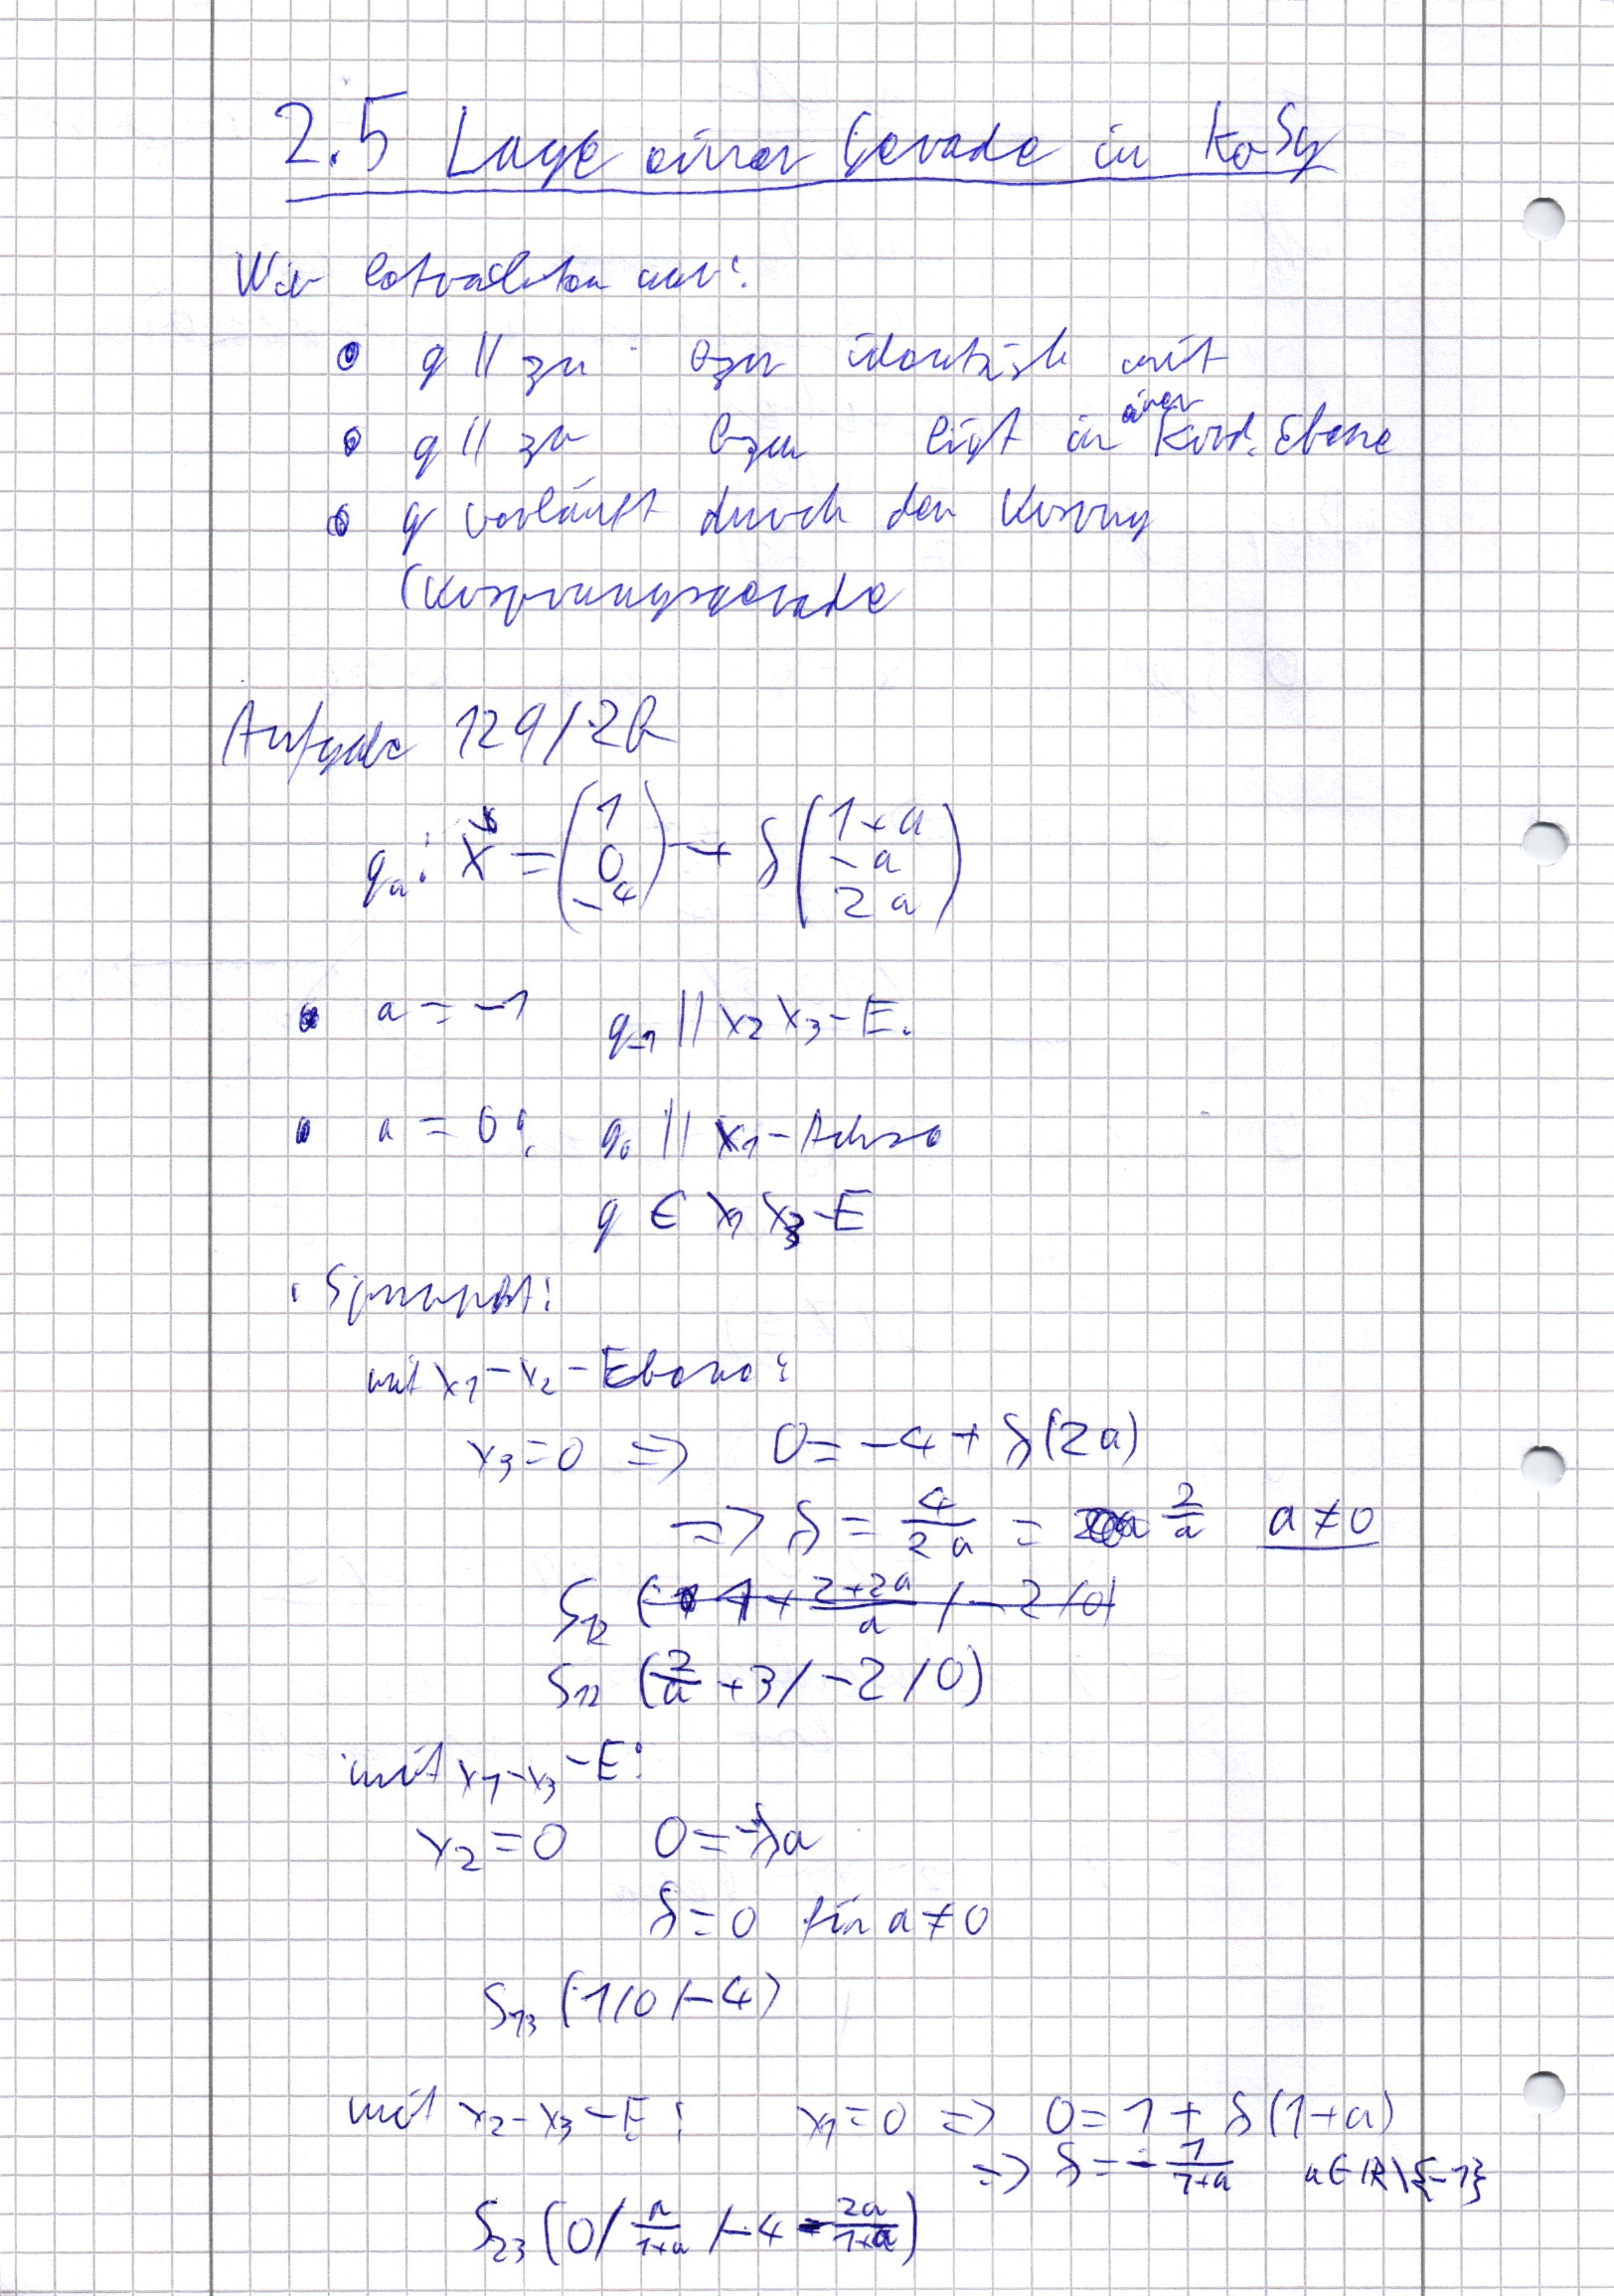 2.5 Lage einer Gerade in KoSy
Wir betrachten nur:
• g || zu bzw identisch mit
• g || zu bzw liegt in einer Koord. Ebene
• g verläuft durch den Ursprung
(Ursprungsgerade
Aufgabe 129/2b
g_a: x⃗ = (1 0 -4) + δ (1+a -a 2a)
• a = -1 g_-1 || x2 x3 - E.
• a = 0: g_0 || x1-Achse
g ∈ x1 x3-E
• Spurpkt:
mit x1-x2-Ebene:
x3=0 => 0 = -4 + δ(2a)
=> δ = 4/2a = 2/a a≠0
S12 (1 + 2+2a/a / -2 / 0)
S12 (2/a + 3 / -2 / 0)
mit x1-x3-E:
x2 = 0 0 = -δa
δ = 0 für a≠0
S13 (1/0/-4)
mit x2-x3-E: x1=0 => 0 = 1 + δ(1+a)
=> δ = -1/1+a a∈ℝ\{-1}
S23 (0 / a/1+a / -4 - 2a/1+a)